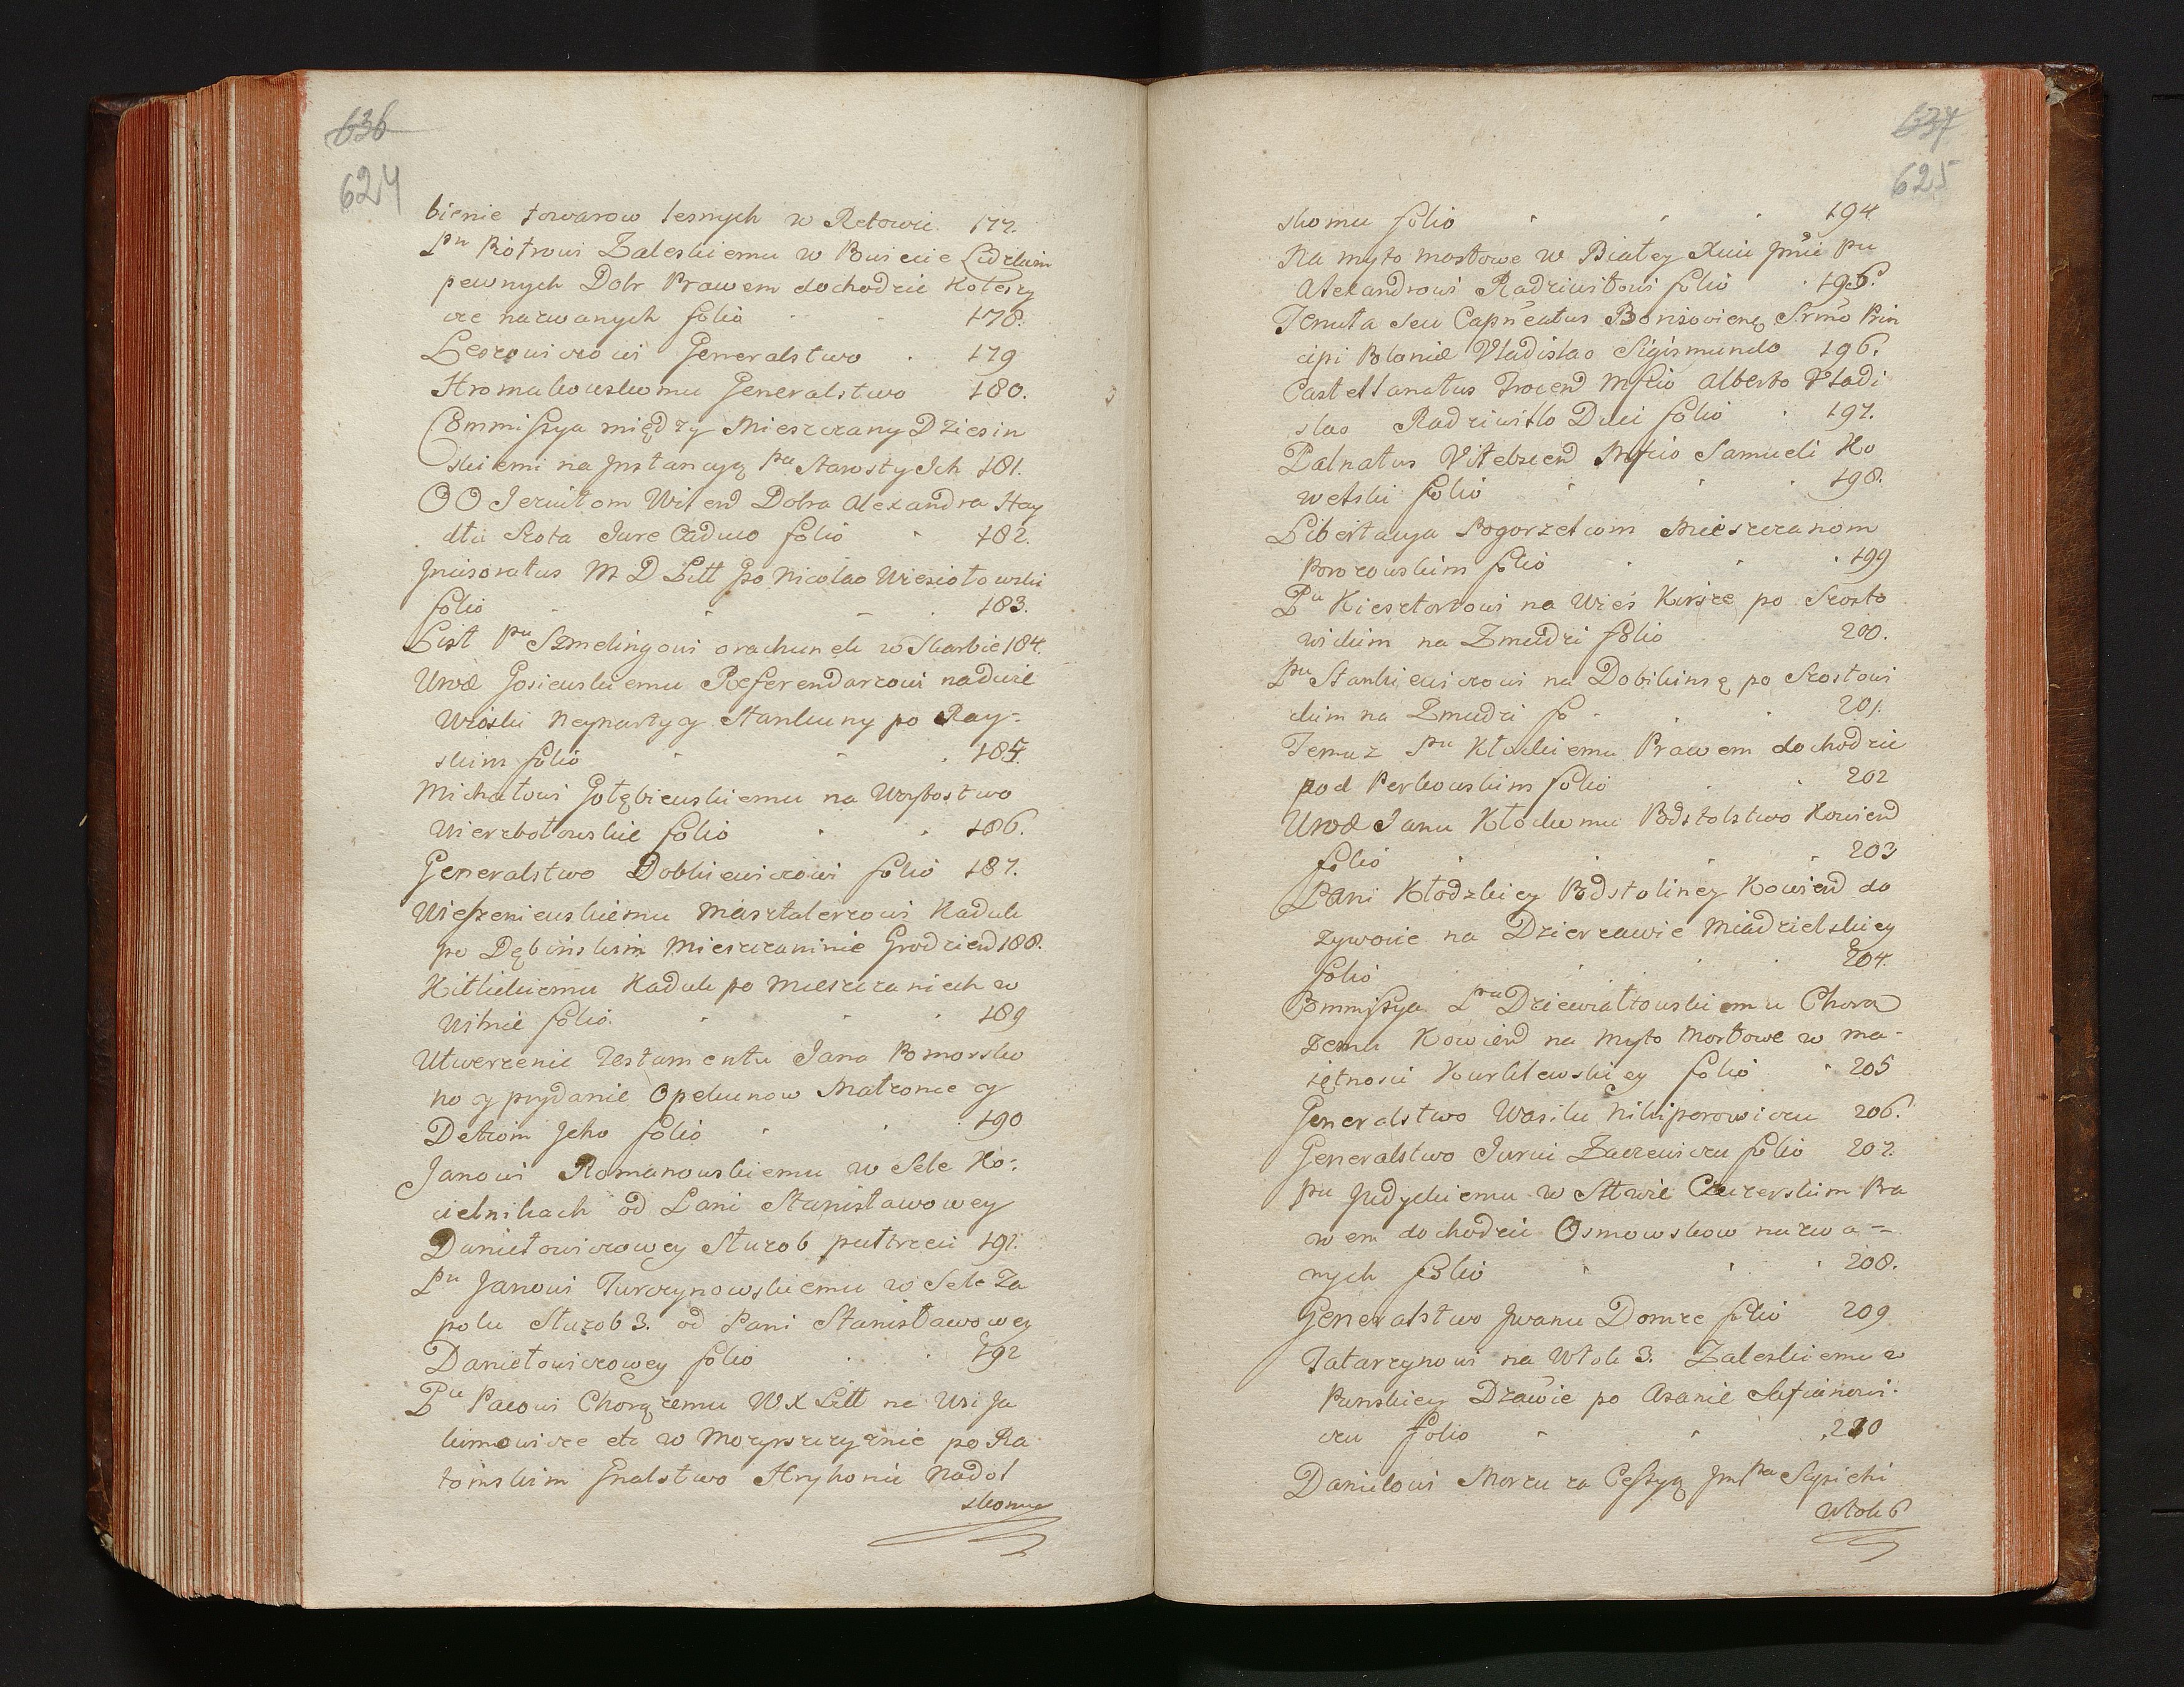 636
624
bienie towarow lesnych w Retowie. 177.
Pu Piotrowi Zaleskiemu w Powiecie Lidzkim
pewnych Dobr Prawem dochodzic Koleszy
cze nazwanych folio 178.
Leszowiczowi Generalstwo 179
Hromakowskomu Generalstwo 180.
Commissya między Mieszczany Dziesin
skiemi na Jnstancyą pu Starosty Ich 181.
OO Jezuitom Wilend Dobra Alexandra Hay
dla Szota Jure Caduco folio 182.
Jncisoratus M D Litt po Nicolao Wiesiołowski
folio 183.
List Pu Szmelingowi orachunek w Skarbie 184.
Urod Gosiewskiemu Referendarzowi na dwie
Wioski Neynarty y Stankuny po Ray-
skim folio 185.
Michałowi Gołębiewskiemu na Woytostwo
Wierzbołowskie folio 186.
Generalstwo Dobkiewiczowi folio 187.
Wieszeniewskiemu Masztalerzowi Kaduk
po Dębinskim Mieszczaninie Grodziend 188.
Kitlickiemu Kaduk po Mieszczaniech w
Wilnie folio. 189
Utwerzenie Testamentu Jana Pomorsko
ho y prydanie Opekunow Małzonce y
Detiom Jeho folio 190
Janowi Romanowskiemu w Sele Ko-
cielnikach od Pani Stanisławowey
Daniełowiczowey Służob puttrzeci 191.
Pu Janowi Turczynowskiemu w Sele Za
polu Służob 3. od Pani Stanisławowey
Daniełowiczowey folio 192
Pu Pacowi Chorążemu W X Litt na Wsi Ja
kimowicze etc w Mozyrszczyznie po Ra
tomskim Gnalstwo Hryhoriu Nadol
skomu
637
625
skomu folio 194
Na myto mostowe w Białey Xcia Jmci Pu
Alexandrowi Radziwiłowi folio 195.
Tenuta seu Capneatus Borisoviens Srmo Prin
cipi Poloniæ Vladislao Sigismundo 196.
Castellanatus Trocend Mfcio Alberto Vladi
slao Radziwiłło Duci folio 197.
Palnatus Vitebscend Mfcio Samueli Ko
welski folio 198.
Libertacya Pogorzelcom Mieszczanom
Porozowskim folio 199
Pu Kiesztortowi na Wieś Kirsze po Szosto
wickim na Zmudzi folio 200.
Pu Stankiewiczowi na Dobikinsę po Szostowi
ckim na Zmudzi fo 201.
Temuz Pu Kłockiemu Prawem dochodzic
pod Perkowskim folio 202
Urod Janu Kłockomu Podstolstwo Kowiend
folio 203
Pani Kłodzkiey Podstoliney Kowiend do
zywocie na Dzierzawie Miadzielskiey
folio 204.
Commissya Pu Dziewiałtowskiemu Chora
zemu Kowiend na Myto Mostowe w ma-
iętnosci Kurklewskiey folio 205
Generalstwo Wasilu Nikiperowiczu 206.
Generalstwo Juriu Zaczewiczu folio 207.
Pu Judyckiemu w Sttwie Czeczerskim Pra
wem dochodzic Osmowskow nazwa-
nych folio 208.
Generalstwo Jwanu Domze folio 209
Tatarzynowi na Włok 3. Zaleskiemu w
Punskiey Dzawie po Asanie Safianowi-
czu folio 210
Danielowi Morzu za Cessyą Jmpu Sapiehi
Włok 6